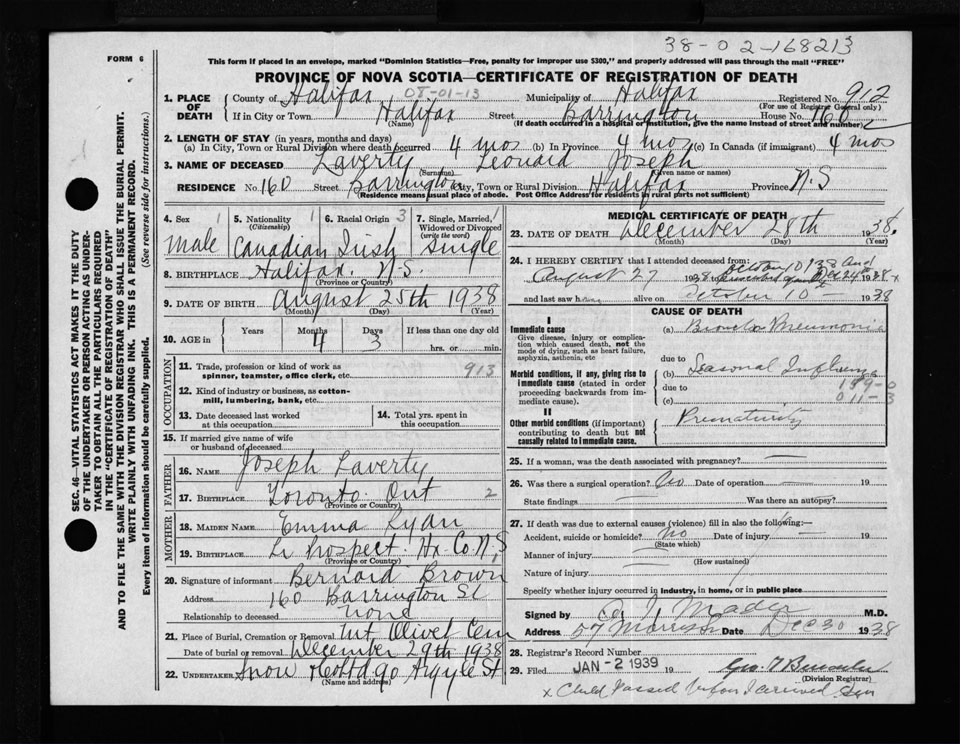 38-02-168213
FORM 6
This form if placed in an envelope, marked "Dominion Statistics—Free, penalty for improper use $300," and properly addressed will pass through the mail "FREE"
PROVINCE OF NOVA SCOTIA—CERTIFICATE OF REGISTRATION OF DEATH
1. PLACE OF DEATH County of Halifax 01-01-13 Municipality of Halifax Registered No. 912
(For use of Registrar General only)
If in City or Town Halifax Street Barrington House No. 160
(Name) (If death occurred in a hospital or institution, give the name instead of street and number)
2. LENGTH OF STAY (in years, months and days)
(a) In City, Town or Rural Division where death occurred 4 mos (b) In Province 4 mos (c) In Canada (if immigrant) 4 mos
3. NAME OF DECEASED Laverty Leonard Joseph
(Surname) (Given name or names)
RESIDENCE No. 160 Street Barrington City, Town or Rural Division Halifax Province N.S
(Residence means usual place of abode. Post Office Address for residents in rural parts not sufficient)
SEC. 46—VITAL STATISTICS ACT MAKES IT THE DUTY
OF THE UNDERTAKER OR PERSON ACTING AS UNDER-
TAKER TO OBTAIN ALL THE PARTICULARS REQUIRED
IN THE "CERTIFICATE OF REGISTRATION OF DEATH"
AND TO FILE THE SAME WITH THE DIVISION REGISTRAR WHO SHALL ISSUE THE BURIAL PERMIT.
WRITE PLAINLY WITH UNFADING INK. THIS IS A PERMANENT RECORD.
Every item of information should be carefully supplied. (See reverse side for instructions.)
4. Sex 1 5. Nationality 1 6. Racial Origin 3 7. Single, Married, 1
(Citizenship) Widowed or Divorced
(write the word)
Male Canadian Irish Single
8. BIRTHPLACE Halifax. N.S.
(Province or Country)
9. DATE OF BIRTH August 25th 1938
(Month) (Day) (Year)
10. AGE in Years Months Days If less than one day old
4 3 hrs. or min.
OCCUPATION
11. Trade, profession or kind of work as
spinner, teamster, office clerk, etc. 913
12. Kind of industry or business, as cotton-
mill, lumbering, bank, etc.
13. Date deceased last worked
at this occupation
14. Total yrs. spent in
this occupation
15. If married give name of wife
or husband of deceased
FATHER
16. NAME Joseph Laverty
17. BIRTHPLACE Toronto Ont 2
(Province or Country)
MOTHER
18. MAIDEN NAME Emma Ryan
19. BIRTHPLACE Lr Prospect. Hx. Co. N.S 1
(Province or Country)
20. Signature of informant Bernard Brown
Address 160 Barrington St
Relationship to deceased none
21. Place of Burial, Cremation or Removal Mt. Olivet Cem
Date of burial or removal December 29th 1938
22. UNDERTAKER Snow & Co Ltd 90 Argyle St.
(Name and address)
MEDICAL CERTIFICATE OF DEATH
23. DATE OF DEATH December 28th 1938.
(Month) (Day) (Year)
24. I HEREBY CERTIFY that I attended deceased from:
August 27 1938 October 10 1938 And Dec 24th 1938 x
and last saw h alive on October 10th 1938
CAUSE OF DEATH
I
Immediate cause
Give disease, injury or complica-
tion which caused death, not the
mode of dying, such as heart failure,
asphyxia, asthenia, etc
(a) Broncho Pneumonia
due to
Morbid conditions, if any, giving rise to
immediate cause (stated in order
proceeding backwards from im-
mediate cause).
(b) Seasonal Influenza
due to 159-0
(c) 011-3
II
Other morbid conditions (if important)
contributing to death but not
causally related to immediate cause.
Prematurity
25. If a woman, was the death associated with pregnancy? —
26. Was there a surgical operation? No Date of operation — 19
State findings — Was there an autopsy?
27. If death was due to external causes (violence) fill in also the following:—
Accident, suicide or homicide? No Date of injury — 19
(State which)
Manner of injury
(How sustained)
Nature of injury
Specify whether injury occurred in industry, in home, or in public place
Signed by Mader M.D.
Address 57 Morris St Date Dec 30 1938
28. Registrar's Record Number
29. Filed JAN - 2 1939 19
(Division Registrar)
x Child passed before I arrived.